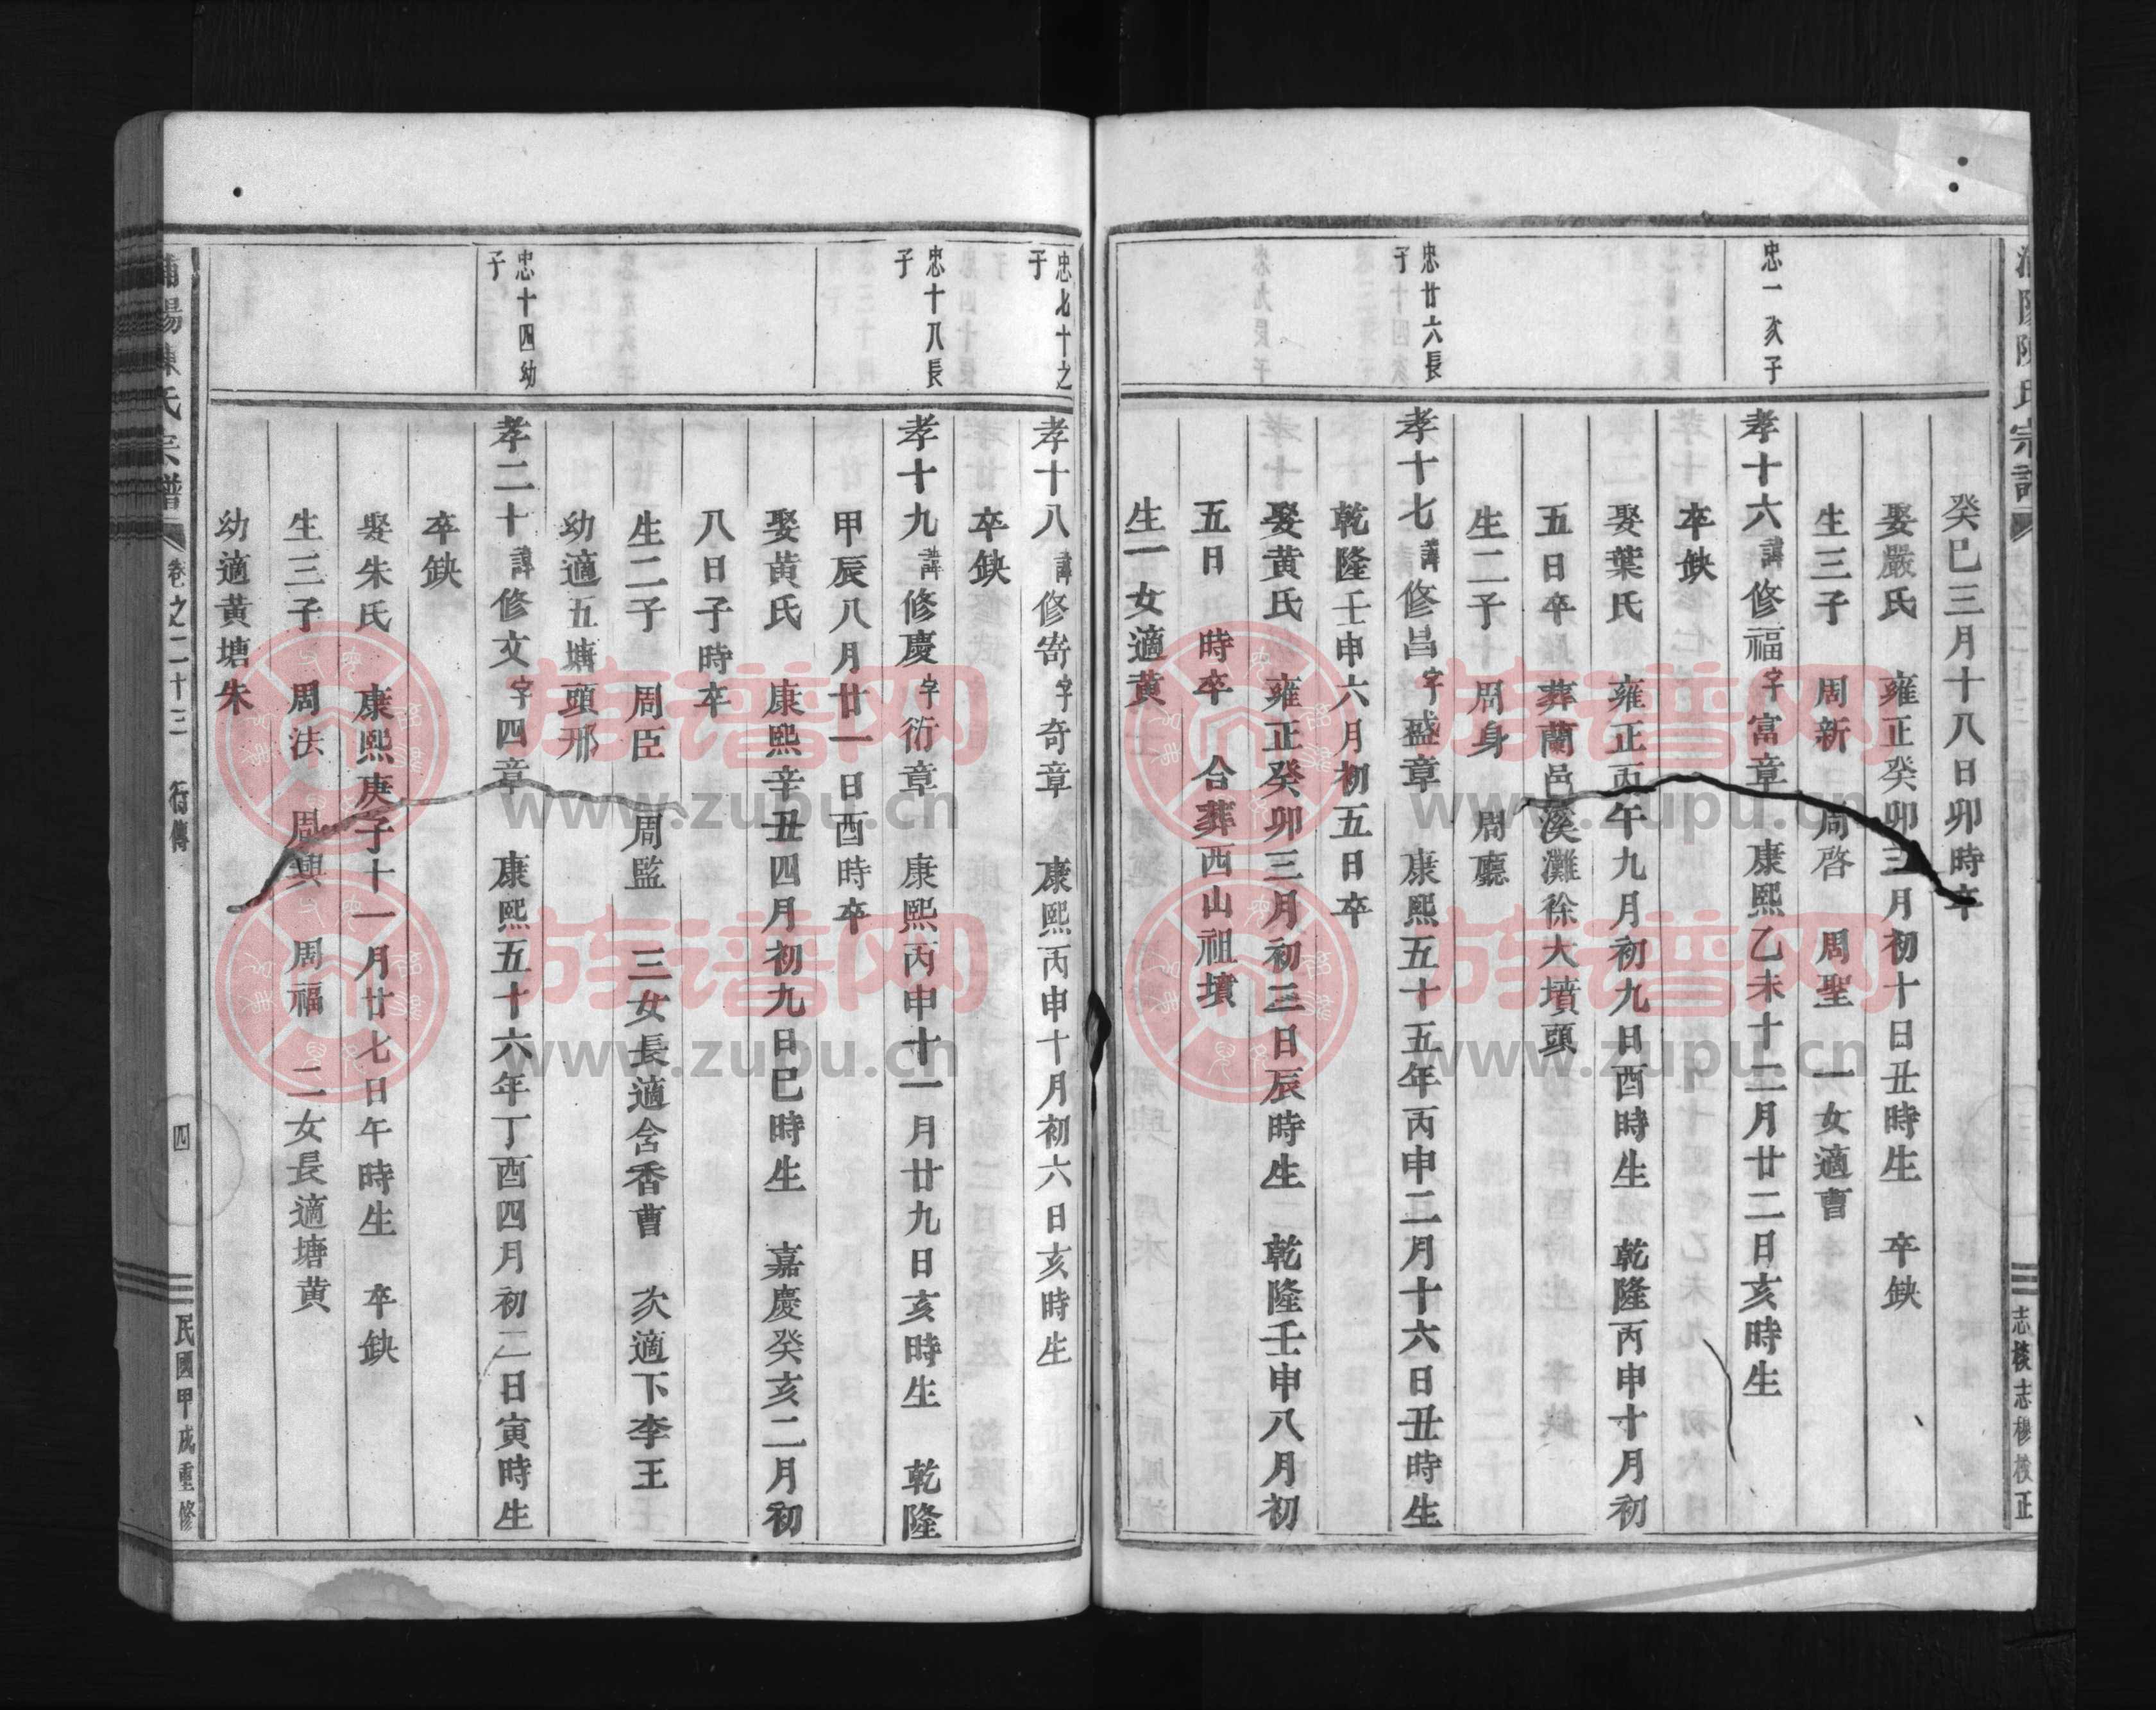 浦陽陳氏宗譜
志棱志穆校正
癸巳三月十八日卯時卒
娶嚴氏　雍正癸卯三月初十日丑時生　卒缺
生三子　周新　周啓　周聖　一女適曹
忠一次子
孝十六諱修福字富章　康熙乙未十二月廿二日亥時生
卒缺
娶葉氏　雍正丙午九月初九日酉時生　乾隆丙申十月初
五日卒　葬蘭邑溪灘徐大墳頭
生二子　周身　周廳
忠廿六長子
孝十七諱修昌字盛章　康熙五十五年丙申二月十六日丑時生
乾隆壬申六月初五日卒
娶黄氏　雍正癸卯三月初三日辰時生　乾隆壬申八月初
五日　時卒　合葬西山祖墳
生一女適黄
忠七十之子
孝十八諱修嵜字奇章　康熙丙申十月初六日亥時生
卒缺
忠十八長子
孝十九諱修慶字衍章　康熙丙申十一月廿九日亥時生　乾隆
甲辰八月廿一日酉時卒
娶黄氏　康熙辛丑四月初九日巳時生　嘉慶癸亥二月初
八日子時卒
生二子　周臣　周監　三女長適含香曹　次適下李王
幼適五塘頭邢
忠十四幼子
孝二十諱修文字四章　康熙五十六年丁酉四月初二日寅時生
卒缺
娶朱氏　康熙庚子十一月廿七日午時生　卒缺
生三子　周法　周興　周福　二女長適塘黄
幼適黄塘朱
浦陽陳氏宗譜　卷之二十三　行傳　四　民國甲戌重修
族谱网
www.zupu.cn
族谱网
www.zupu.cn
族谱网
www.zupu.cn
族谱网
www.zupu.cn